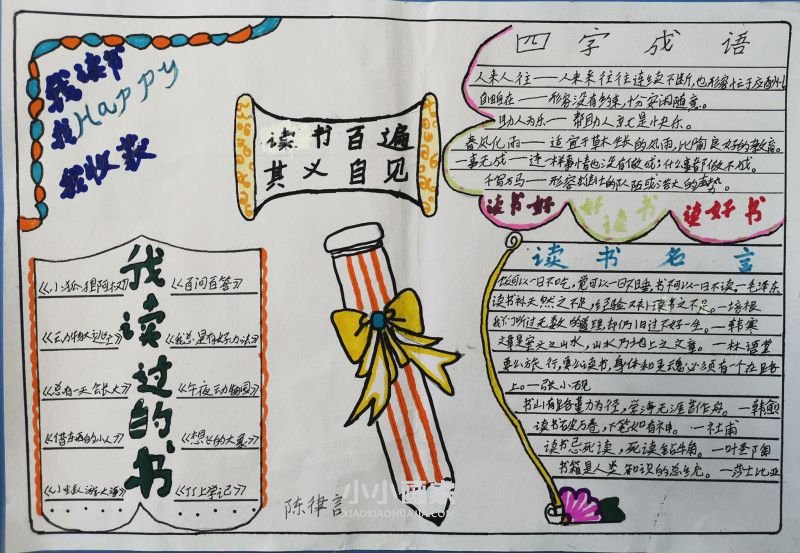 我读书
我Happy
我收获
读书百遍
其义自见
四字成语
人来人往——人来来往往连续不断,也形容忙于应酬
自由自在——形容没有约束,十分安闲随意。
助人为乐——帮助人
春风化雨——适宜于草木生长的风雨,比喻良好的教育。
一事无成——连一样事情也没有做成;什么事都做不成。
千军万马——形容雄壮的队伍或浩大的声势。
读书好
好读书
读好书
我读过的书
《百问百答》
《我总是有好办法》
《总有一天会长大》
《午夜动物园》
《借东西的小人》
《想飞的大象》
《丁丁上学记》
读书名言
饭可以一日不吃,觉可以一日不睡,书不可以一日不读。—毛泽东
读书补天然之不足,经验又补读书之不足。—培根
我们听过无数的道理,却仍旧过不好一生。—韩寒
文章是案头之山水,山水乃地上之文章。—林语堂
要么旅行,要么读书,身体和灵魂必须有一个在路
上。—张小砚
书山有路勤为径,学海无涯苦作舟。—韩愈
读书破万卷,下笔如有神。—杜甫
读书忌死读,死读钻牛角。—叶圣陶
书籍是人类知识的总统。—莎士比亚
陈律言
小小画家
XIAOXIAOHUAJIA.COM